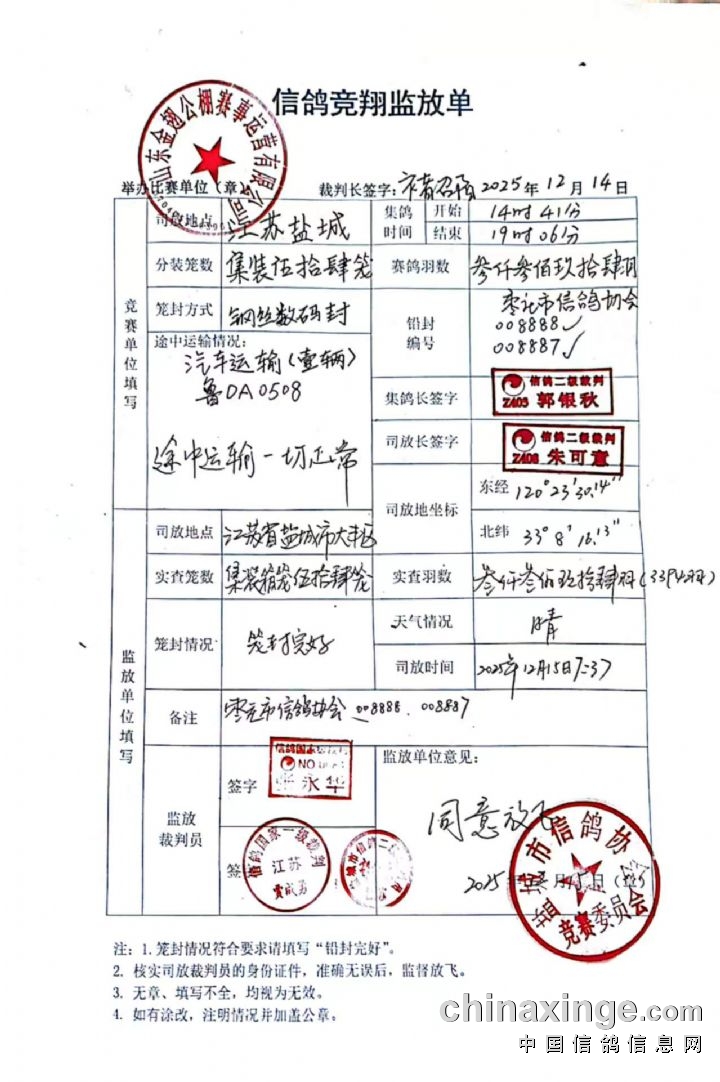 信鸽竞翔监放单
山东金翅公棚赛事运营有限公司
举办比赛单位（章）
裁判长签字：
2025年12月14日
竞赛单位填写
司放地点 江苏盐城
集鸽时间 开始 14时41分
结束 19时06分
分装笼数 集装伍拾肆笼
赛鸽羽数 叁仟叁佰玖拾肆羽
笼封方式 钢丝数码封
铅封编号 枣庄市信鸽协会
008888
008887
途中运输情况：
汽车运输（壹辆）
鲁DA0508
途中运输一切正常
集鸽长签字 信鸽二级裁判
Z405 郭银秋
司放长签字 信鸽二级裁判
Z408 朱可意
司放地坐标 东经 120°23'30.14"
北纬 33°8'16.13"
监放单位填写
司放地点 江苏省盐城市大丰区
实查笼数 集装箱笼伍拾肆笼
实查羽数 叁仟叁佰玖拾肆羽（3394羽）
笼封情况 笼封完好
天气情况 晴
司放时间 2025年12月15日7:37
备注 枣庄市信鸽协会 008888. 008887
监放裁判员
签字
永华
签
信鸽国家一级裁判
江苏
监放单位意见：
同意放飞
2025
盐城市信鸽协会
竞赛委员会
注：1. 笼封情况符合要求请填写“铅封完好”。
2. 核实司放裁判员的身份证件，准确无误后，监督放飞。
3. 无章、填写不全，均视为无效。
4. 如有涂改，注明情况并加盖公章。
chinaxinge.com
中国信鸽信息网